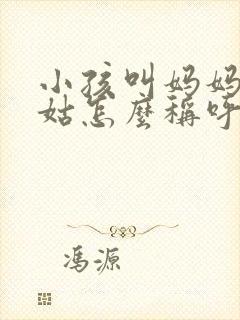 小孩叫妈妈
姑怎麼稱呼
馮源